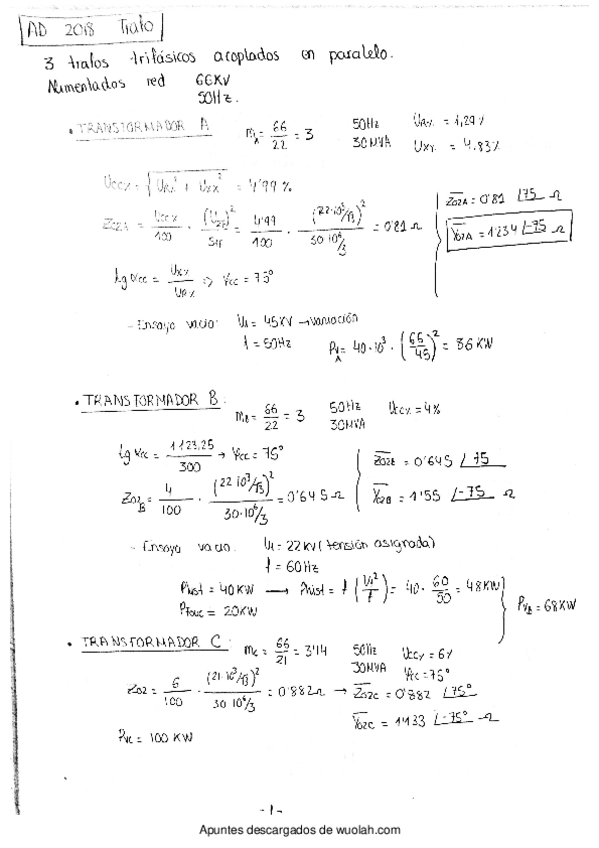 AD 2018 Trafo
3 trafos trifásicos acoplados en paralelo.
Alimentados red 66KV
50Hz.
• TRANSFORMADOR A mA = 66/22 = 3 50Hz URx = 1,29%
30MVA Uxx = 4.83%
Uccx = √(URx² + Uxx²) = 4'99%
Z02A = Uccx/100 · (U2F)²/S1F = 4'99/100 · (22·10³/√3)²/(30 10⁶/3) = 0'81 Ω
Z02A = 0'81 ∠75 Ω
Y02A = 1'234 ∠-75 Ω
tg φcc = Uxx/URx => φcc = 75°
- Ensayo vacío: U1 = 45KV → variación
f = 50Hz PVA = 40·10³ · (66/45)² = 86 KW
• TRANSFORMADOR B: mB = 66/22 = 3 50Hz Uccx = 4%
30MVA
tg φcc = 1123,25/300 → φcc = 75°
Z02B = 4/100 · (22 10³/√3)²/(30·10⁶/3) = 0'645 Ω
Z02B = 0'645 ∠75
Y02B = 1'55 ∠-75 Ω
- Ensayo vacío: U1 = 22KV (tensión asignada)
f = 60Hz
Phist = 40KW → Phist = f (U1²/f) = 40 · 60/50 = 48KW
Pfouc = 20KW
PVB = 68KW
• TRANSFORMADOR C: mC = 66/21 = 3'14 50Hz Uccx = 6%
30MVA φcc = 75°
Z02 = 6/100 · (21·10³/√3)²/(30 10⁶/3) = 0'882 Ω → Z02C = 0'882 ∠75°
Y02C = 1'133 ∠-75° Ω
PVC = 100 KW
-1-
Apuntes descargados de wuolah.com